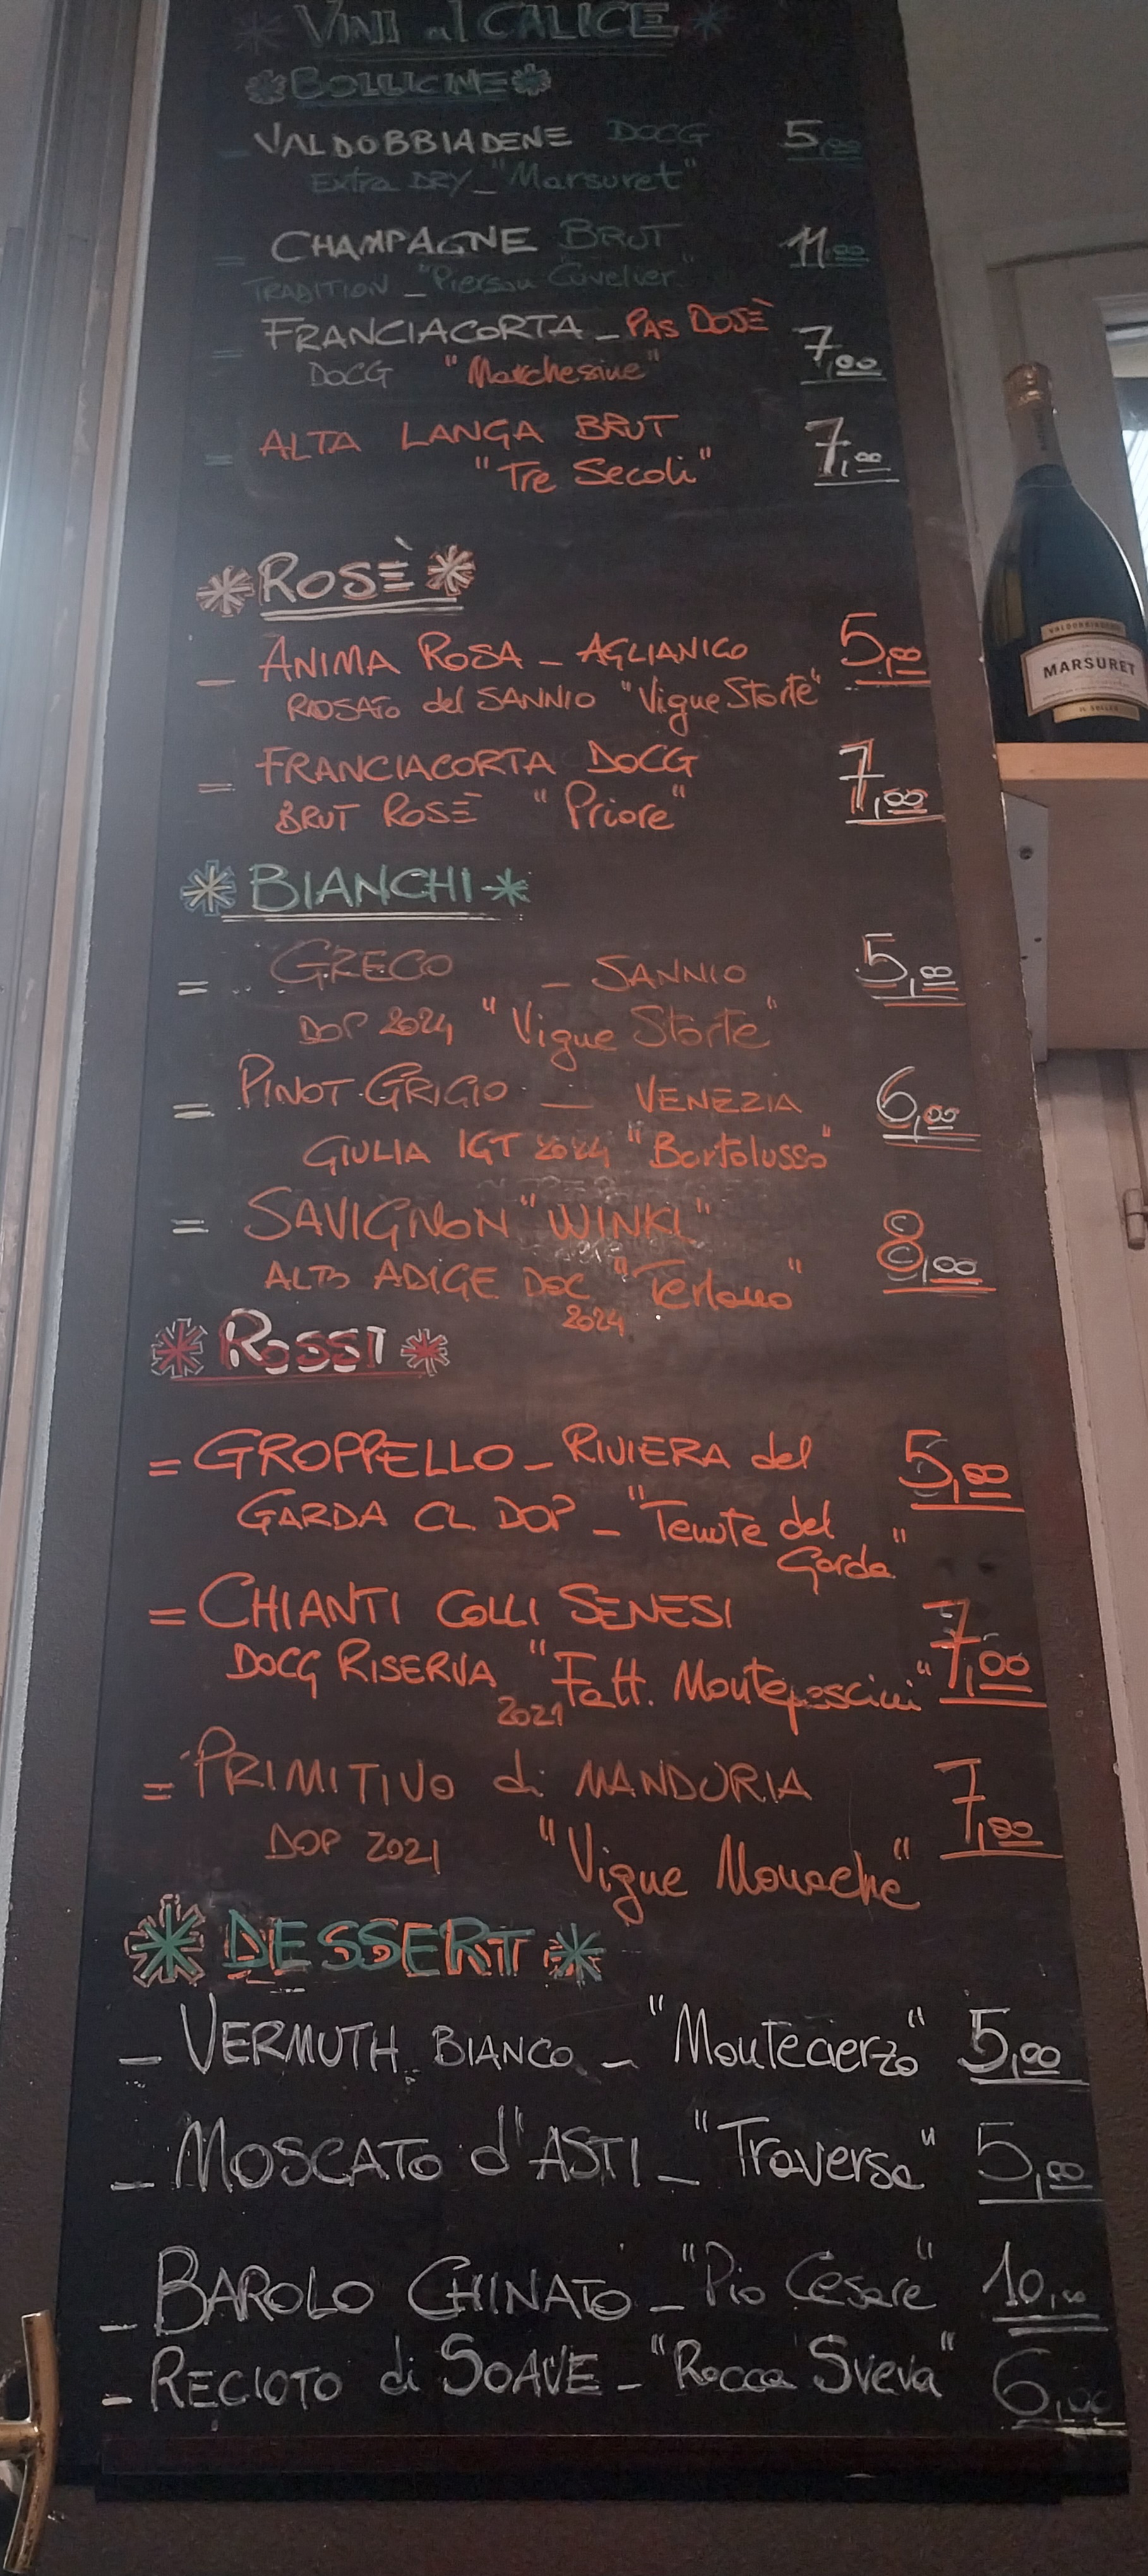 * VINI al CALICE *
* BOLLICINE *
- VALDOBBIADENE DOCG 5,00
EXTRA DRY - "Marsuret"
= CHAMPAGNE BRUT 11,00
TRADITION - "Pierson Cuvelier"
= FRANCIACORTA - PAS DOSÈ 7,00
DOCG "Marchesine"
= ALTA LANGA BRUT 7,00
"Tre Secoli"
* ROSÈ *
- ANIMA ROSA - AGLIANICO 5,00
ROSATO del SANNIO "Vigne Storte"
= FRANCIACORTA DOCG 7,00
BRUT ROSÈ "Priore"
* BIANCHI *
= GRECO - SANNIO 5,00
DOP 2024 "Vigne Storte"
= PINOT GRIGIO - VENEZIA 6,00
GIULIA IGT 2024 "Bortolusso"
= SAVIGNON "WINKL" 8,00
ALTO ADIGE DOC "Terlano"
2024
* ROSSI *
= GROPPELLO - RIVIERA del 5,00
GARDA CL DOP - "Tenute del
Garda"
= CHIANTI COLLI SENESI 7,00
DOCG RISERVA "Fatt. Montepescini"
2021
= PRIMITIVO di MANDURIA 7,00
DOP 2021 "Vigne Monache"
* DESSERT *
- VERMUTH BIANCO - "Montecierzo" 5,00
- MOSCATO d'ASTI - "Traversa" 5,00
- BAROLO CHINATO - "Pio Cesare" 10,00
- RECIOTO di SOAVE - "Rocca Sveva" 6,00
VALDOBBIADENE
MARSURET
IL SOLLER